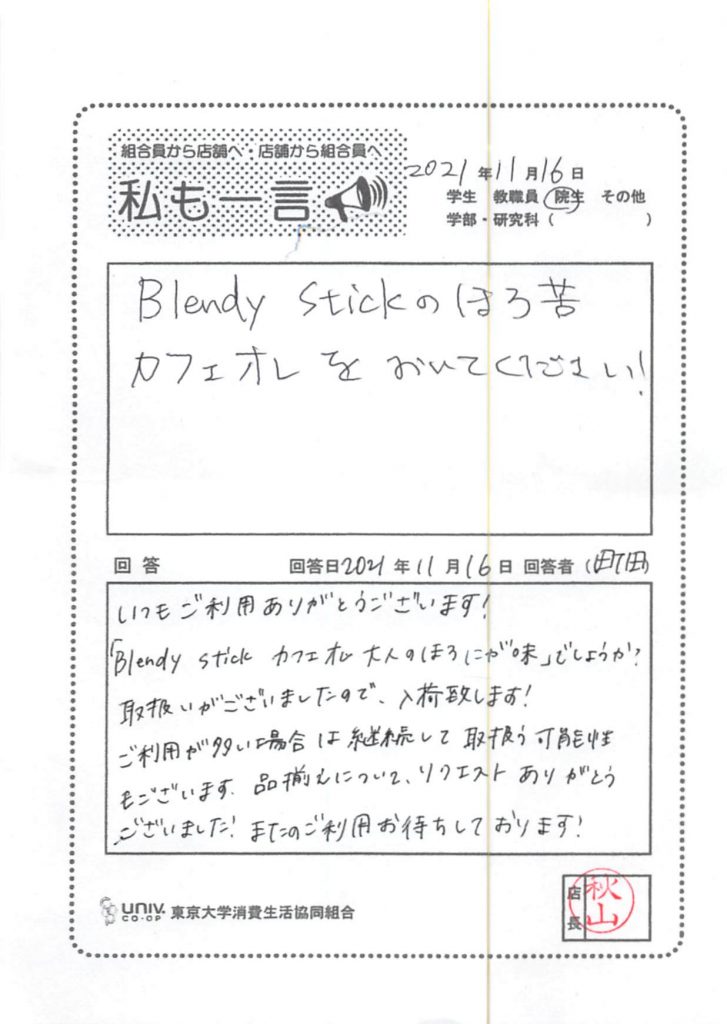 組合員から店舗へ・店舗から組合員へ
私も一言
2021年11月16日
学生 教職員 院生 その他
学部・研究科( )
Blendy Stickのほろ苦
カフェオレを おいてください!
回答 回答日2021年11月16日 回答者(町田)
いつもご利用ありがとうございます!
「Blendy stick カフェオレ 大人のほろにが味」でしょうか?
取扱いがございましたので、入荷致します!
ご利用が多い場合は継続して取扱う可能性
もございます。品揃えについて、リクエストありがとう
ございました! またのご利用お待ちしております!
UNIV. CO-OP 東京大学消費生活協同組合
店長 秋山